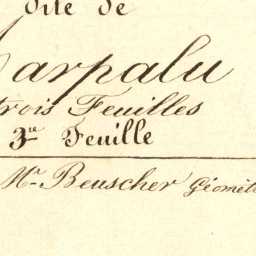 dite de
Carpalu
trois Feuilles
3me Feuille
Mr Beuscher Géomèt